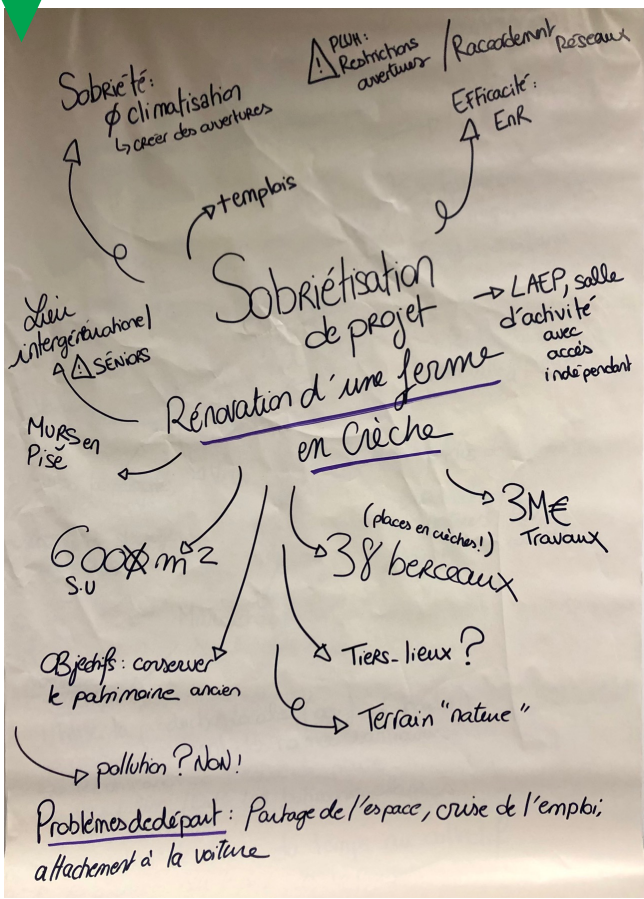 Sobriété:
∅ climatisation
↳ créer des ouvertures
⚠ PLUH:
Restrictions
ouvertures
/ Raccordement Réseaux
Efficacité:
EnR
→ templois
Sobriétisation
de projet
Rénovation d'une ferme
en Crèche
→ LAEP, salle
d'activité
avec
accès
indépendant
Lieu
intergénérationel
⚠ SÉNIORS
MURS en
Pisé
600 m²
S.U
(places en crèches!)
38 berceaux
3M€
Travaux
Objectifs: conserver
le patrimoine ancien
Tiers-lieux?
Terrain "nature"
pollution? NON!
Problèmes de départ: Partage de l'espace, crise de l'emploi;
attachement à la voiture